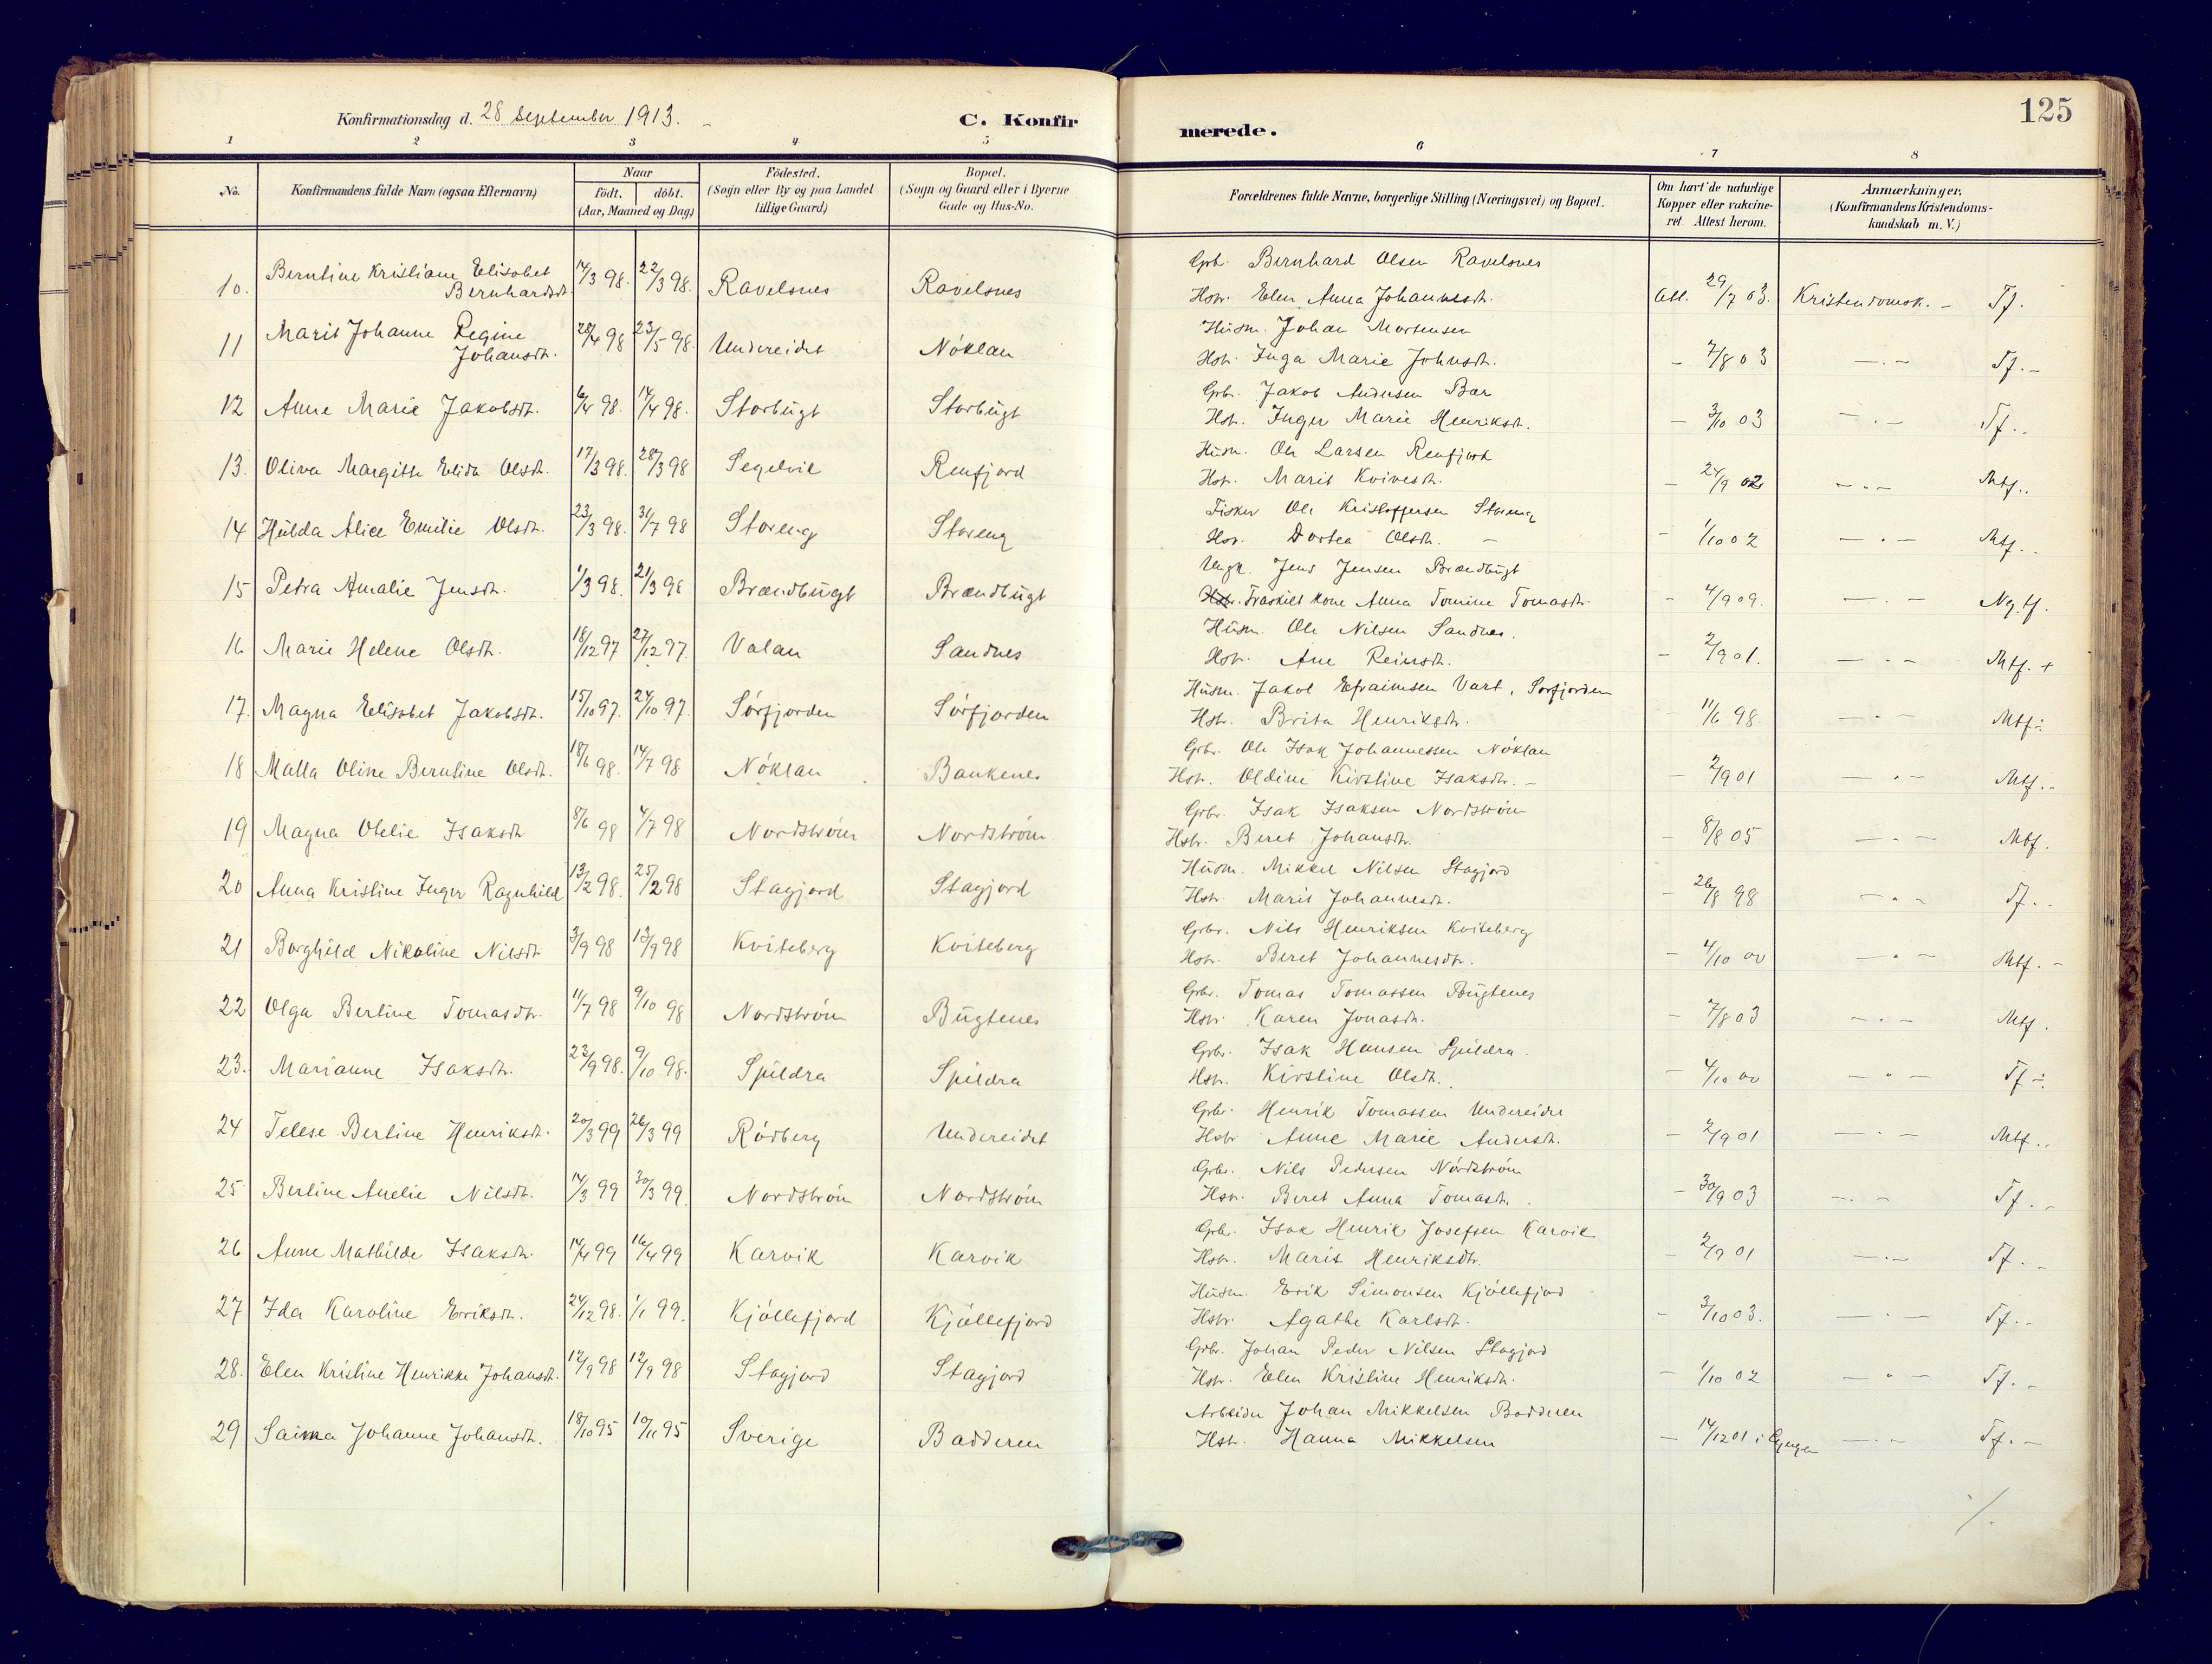 125
Konfirmationsdag d. 28 September 1913.
C. Konfirmerede.
1 2 3 4 5 6 7 8
No. Konfirmandens fulde Navn (ogsaa Efternavn) Naar født. døbt. (Aar, Maaned og Dag) Fødested. (Sogn eller By og paa Landet tillige Gaard) Bopæl. (Sogn og Gaard eller i Byerne Gade og Hus-No. Forældrenes fulde Navne, borgerlige Stilling (Næringsvei) og Bopæl. Om havt de naturlige Kopper eller vakcineret Attest herom. Anmærkninger, (Konfirmandens Kristendomskundskab m. V.)
Gbr. Bernhard Olsen Ravelsnes
10. Berntine Kristiane Elisabet Bernhardsdt. 14/3 98. 22/3 98. Ravelsnes Ravelsnes Hstr. Elen Anna Johannesdt. Att. 29/7 03. Kristendomsk. - Tf.
Husm. Johan Mortensen
11 Marit Johanne Regine Johansdt. 28/4 98 23/5 98. Undereidet Nöklan Hstr. Inga Marie Johnsdt. - 7/8 03 - . - Tf. -
Gbr. Jakob Andersen Bær
12 Anne Marie Jakobsdt. 6/4 98. 14/4 98. Storbugt Storbugt Hstr. Inger Marie Henriksdt. - 3/10 03 - . - Tf. .
Husm. Ole Larsen Renfjord
13. Oliva Margitte Elida Olsdt. 17/3 98. 28/3 98 Segelvik Renfjord Hstr. Marit Kvivesdt. - 24/9 02 - . - Mtf. .
Fisker Ole Kristoffersen Storeng
14 Hulda Alice Emilie Olsdt. 23/3 98. 31/7 98 Storeng Storeng Hstr. Dortea Olsdt. - - 1/10 02 - . - Mtf. .
Ungk. Jens Jensen Brændbugt
15 Petra Amalie Jensdt. 1/3 98. 21/3 98 Brændbugt Brændbugt Fraskilt kone Anna Tomine Tomasdt. - 4/9 09. - . - Ng. tf.
Husm. Ole Nilsen Sandnes.
16 Marie Helene Olsdt. 18/12 97 27/12 97. Valan Sandnes Hstr. Ane Reinsdt. - 2/9 01. - . - Mtf. +
Husm. Jakob Efraimsen Vart, Sørfjorden
17. Magna Elisabet Jakobsdt. 15/10 97. 24/10 97. Sörfjorden Sörfjorden Hstr. Brita Henriksdt. - 11/6 98 - . - Mtf ÷
Gbr. Ole Isak Johannessen Nöklan
18 Malla Oline Berntine Olsdt. 18/6 98. 14/7 98 Nöklan Bankenes Hstr. Oldine Kirstine Isaksdtr. - - 2/9 01 - . - Mtf. -
Gbr. Isak Isaksen Nordström
19 Magna Otelie Isaksdt 8/6 98 4/7 98 Nordström Nordström Hstr. Beret Johansdtr. - 8/8 05 - . - Mtf.
Husm. Mikkel Nilsen Stagjord
20 Anna Kristine Inger Ragnhild 13/2 98. 25/2 98 Stagjord Stagjord Hstr. Marit Johannesdt. - 26/8 98 - . - Tf. -
Gbr. Nils Henriksen Kviteberg
21 Borghild Nikoline Nilsdt 3/9 98 13/9 98 Kviteberg Kviteberg Hstr. Beret Johannesdtr. - 4/10 00 - . - Mtf. -
Gbr. Tomas Tomassen Bugtenes
22 Olga Bertine Tomasdtr. 11/7 98 9/10 98 Nordström Bugtenes Hstr. Karen Jonasdt. - 7/8 03 - . - Mtf.
Gbr. Isak Hansen Spildra.
23. Marianne Isaksdt. 22/9 98. 9/10 98. Spildra Spildra Hstr. Kirstine Olsdt. - 4/10 00 - . - Tf ÷
Gbr. Henrik Tomassen Undereidet
24 Telese Bertine Henriksdt. 20/3 99 26/3 99 Rödberg Undereidet Hstr Anne Marie Andersdt. - 2/9 01 - . - Mtf. .
Gbr. Nils Pedersen Nordström
25 Bertine Amelie Nilsdt. 14/3 99 30/3 99. Nordström Nordström Hstr. Beret Anna Tomasdt. - 30/9 03 - . - Tf. -
Gbr. Isak Henrik Josefsen Karvik
26 Anne Mathilde Isaksdt. 14/4 99 16/4 99 Karvik Karvik Hstr. Marit Henriksdtr. - 2/9 01 - . - Tf. -
Husm. Erik Simonsen Kjöllefjord
27 Ida Karoline Eriksdt. 24/12 98. 1/1 99. Kjöllefjord Kjöllefjord Hstr. Agathe Karlsdt. - 3/10 03. - . - Tf. -
Gbr. Johan Peder Nilsen Stagjord
28. Elen Kristine Henrikke Johansdt. 12/9 98 12/9 98 Stagjord Stagjord Hstr. Elen Kristine Henriksdt. - 1/10 02 - . - Tf. -
Arbeider Johan Mikkelsen Badderen
29 Saima Johanne Johansdt. 18/10 95 10/11 95 Sverige Badderen Hstr. Hanna Mikkelsen - 14/12 01 i - . - Tf. -